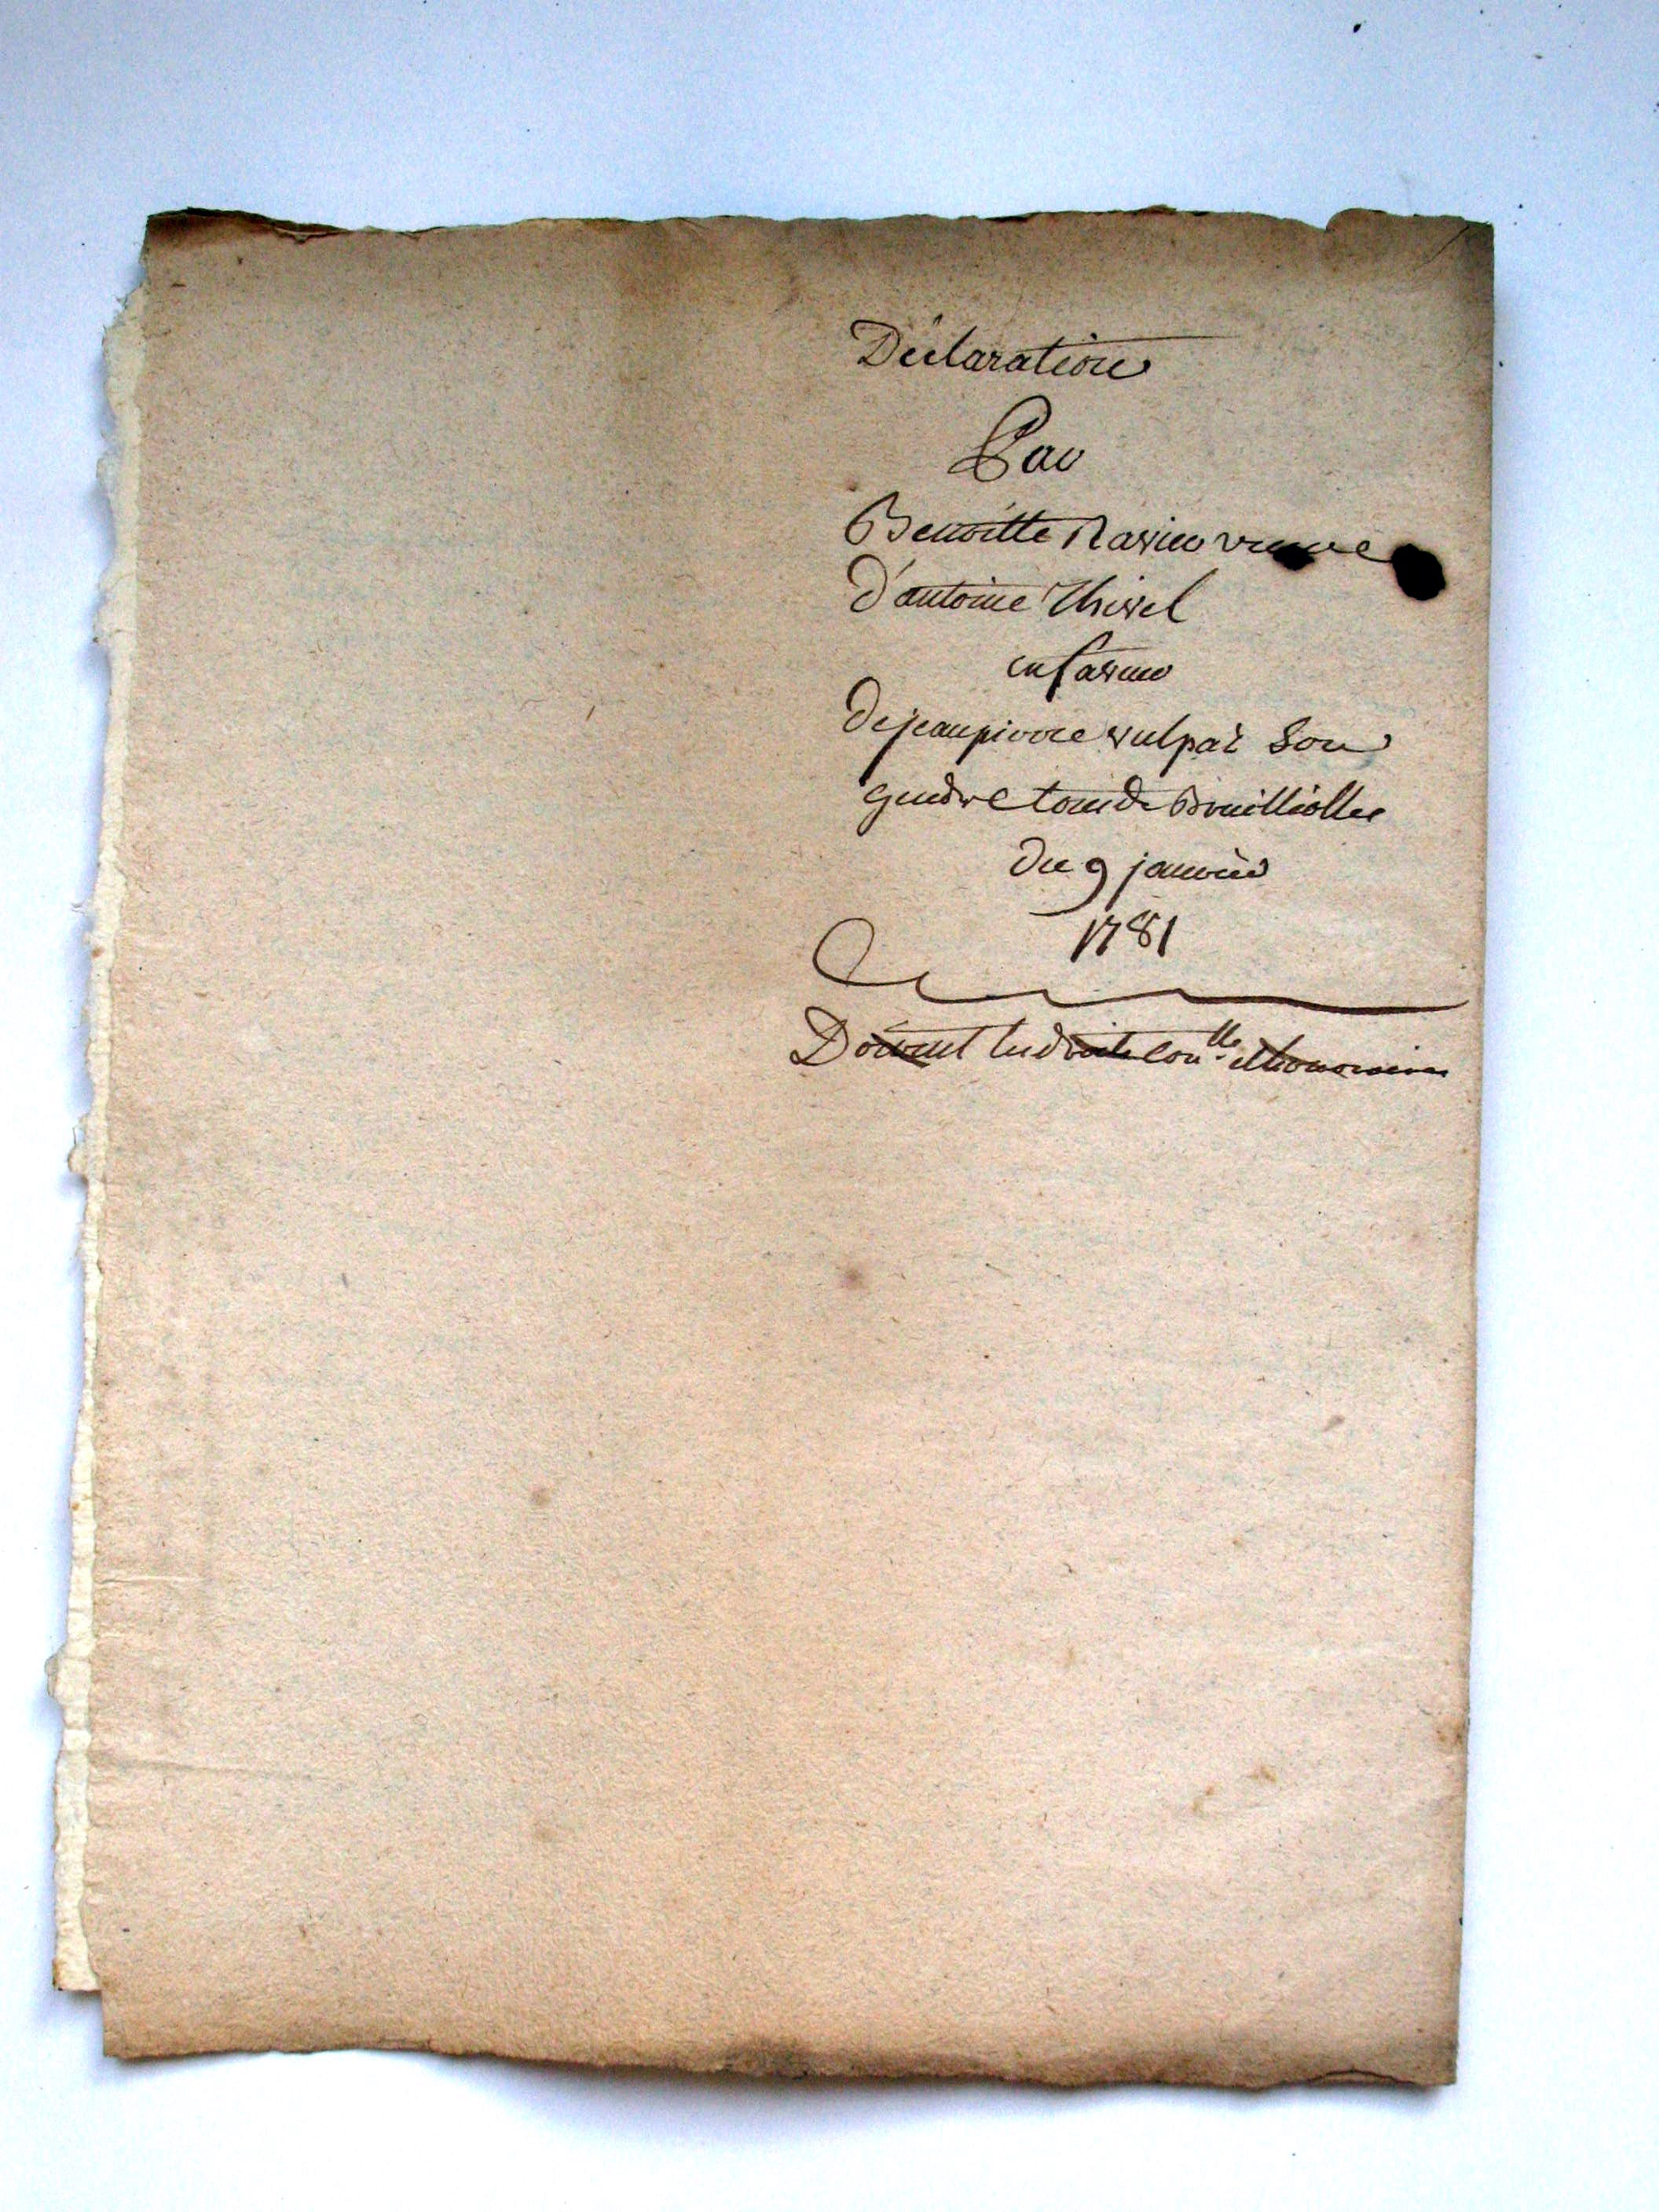 Déclaration
Par
Benoitte Ravier veuve
D'antoine Thivel
en faveur
de jean pierre vulpat Son
gendre tous de Brullioles
du 9 janvier
1781
Doivent les droits con.lle et honoraires